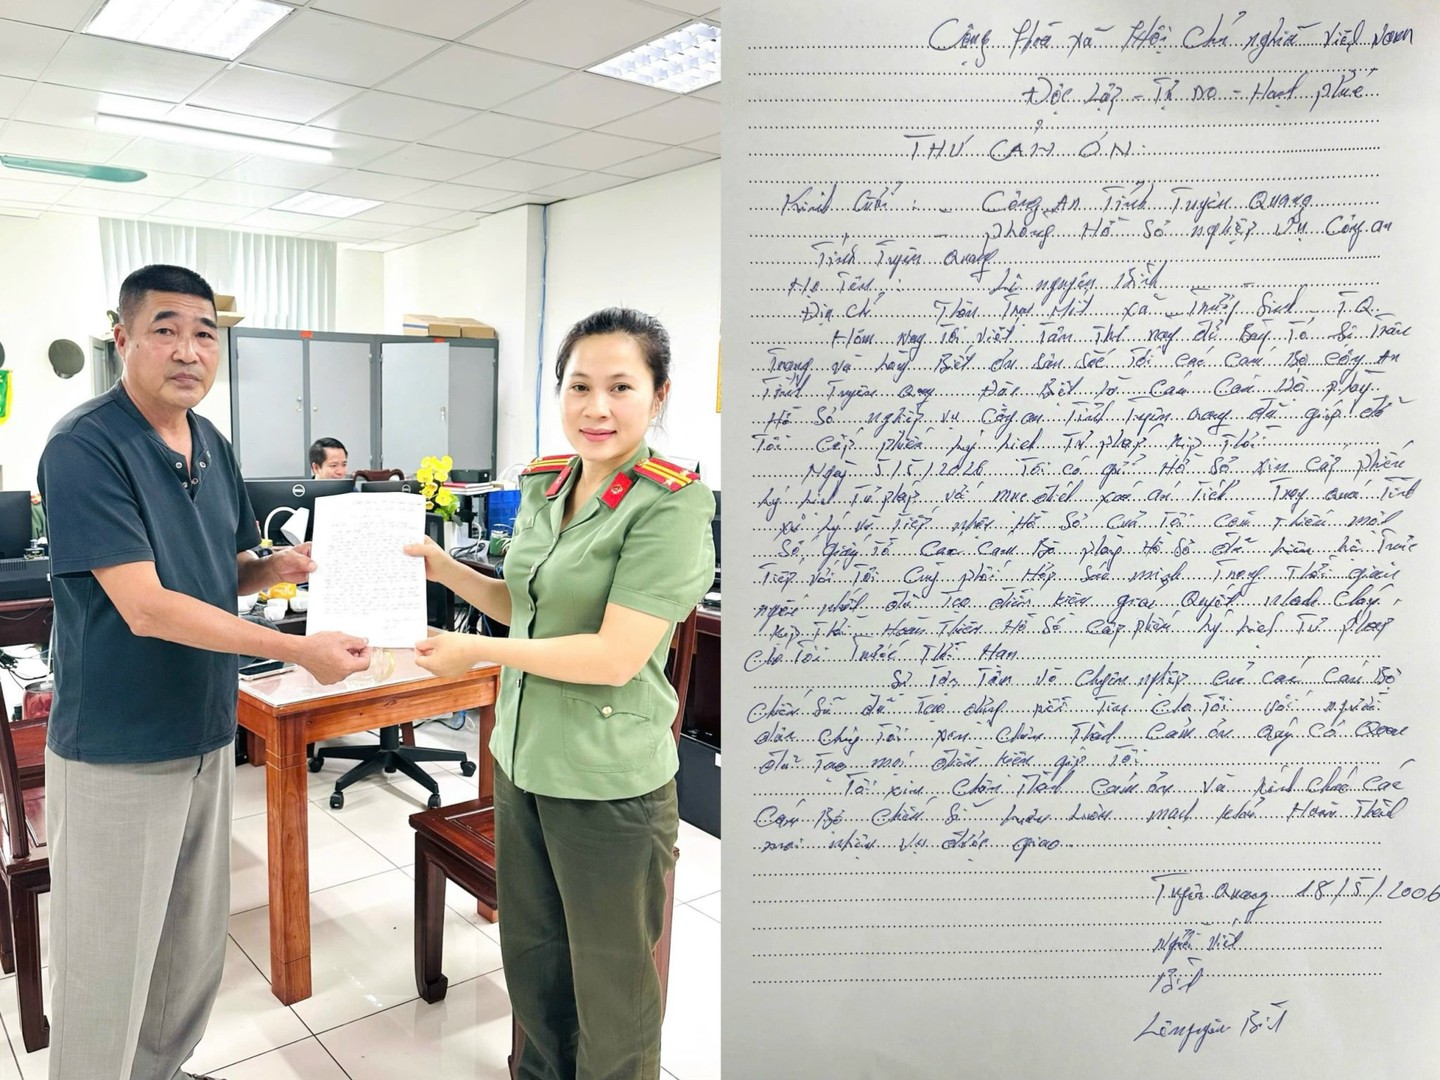 Cộng Hoà xã Hội Chủ nghĩa Việt Nam
Độc Lập - Tự Do - Hạnh phúc
THƯ CẢM ƠN:
Kính Gửi: - Công An Tỉnh Tuyên Quang
- phòng Hồ Sơ nghiệp vụ Công an
Tỉnh Tuyên Quang
Họ Tên: Lê nguyên Bình
Địa chỉ Thôn Trại Mít xã Trường Sinh T.Q
Hôm nay Tôi viết Tâm Thư này để Bày Tỏ Sự Trân
Trọng và Lòng Biết ơn sâu sắc Tới Các Cán Bộ Công An
Tỉnh Tuyên Quang Đặc Biệt là Các Cán Bộ phòng
Hồ Sơ nghiệp vụ Công an Tỉnh Tuyên Quang đã giúp đỡ
Tôi Cấp phiếu Lý Lịch Tư pháp kịp Thời.
Ngày 5/5/2026 Tôi có gửi Hồ Sơ xin Cấp phiếu
Lý Lịch Tư pháp với mục đích xoá án Tích Trong Quá Trình
xử Lý và Tiếp nhận Hồ Sơ Của Tôi Còn Thiếu một
Số giấy Tờ Các Cán Bộ phòng Hồ Sơ đã Liên hệ Trực
Tiếp với Tôi Cùng phối Hợp Xác minh Trong Thời gian
ngắn nhất để Tạo điều kiện giải Quyết nhanh Chóng
kịp Thời Hoàn Thiện Hồ Sơ Cấp phiếu Lý Lịch Tư pháp
Cho Tôi Trước Thời Hạn
Sự Tận Tâm và Chuyên nghiệp Của các Cán Bộ
Chiến Sĩ đã Tạo dựng niềm Tin Cho Tôi với người
dân Chúng Tôi xin Chân Thành Cảm ơn Quý Cơ Quan
đã Tạo mọi điều kiện giúp Tôi
Tôi xin Chân Thành Cảm ơn và kính Chúc Các
Cán Bộ Chiến Sĩ Luôn Luôn mạnh khoẻ Hoàn Thành
mọi nhiệm vụ được giao
Tuyên Quang 18/5/2006
Người Viết
Bình
Lê nguyên Bình
DELL